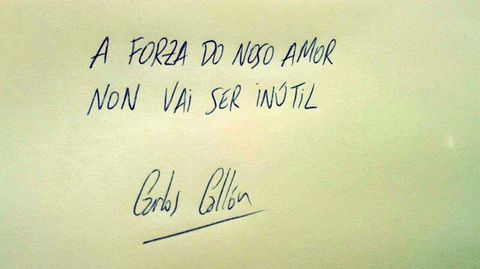 A FORZA DO NOSO AMOR
NON VAI SER INÚTIL
Carlos Callón